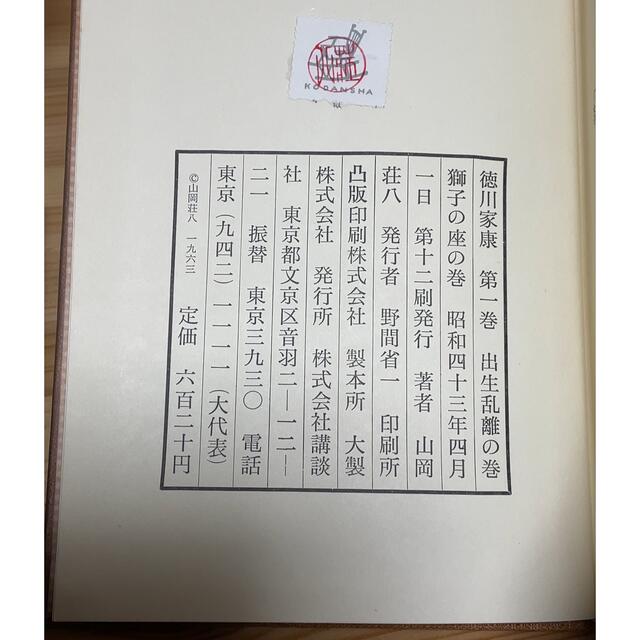 KODANSHA
徳川家康 第一巻 出生乱離の巻
獅子の座の巻 昭和四十三年四月
一日 第十二刷発行 著者 山岡
荘八 発行者 野間省一 印刷所
凸版印刷株式会社 製本所 大製
株式会社 発行所 株式会社講談
社 東京都文京区音羽二―一二―
二一 振替 東京三九三〇 電話
東京(九四二)一一一一(大代表)
©山岡荘八 一九六三 定価 六百二十円